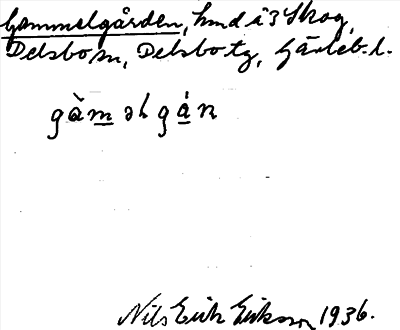 Gammelgården, hmd i 3 Skog,
Delsbo sn, Delsbo tg, Gävleb. l.
gàm̲əlgȧ̲n
Nils Erik Eriksson 1936.